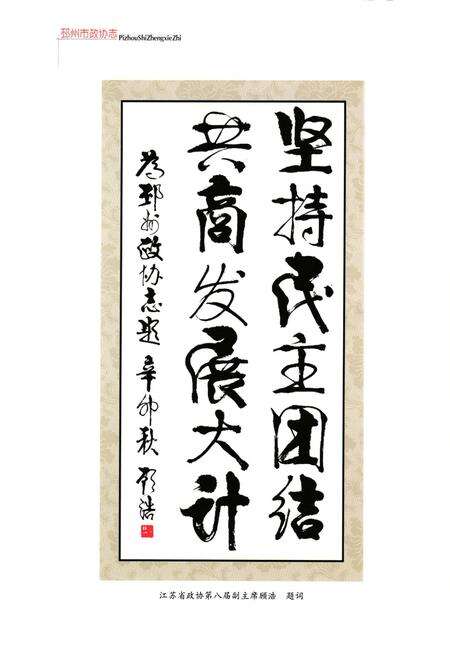 邳州市政协志 PizhouShiZhengxieZhi
坚持民主团结
共商发展大计
为邳州政协志题 辛卯秋 顾浩
江苏省政协第八届副主席顾浩 题词